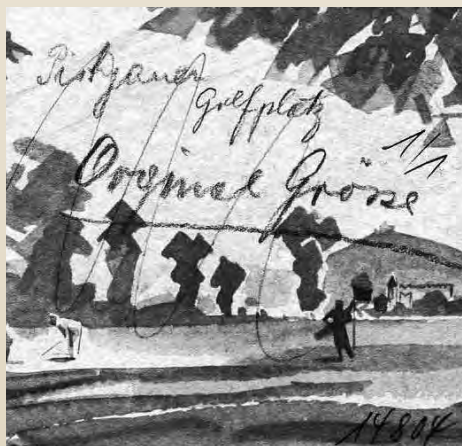 Pistyaner
Golfplatz
1/1
Orginal Grösse
14804